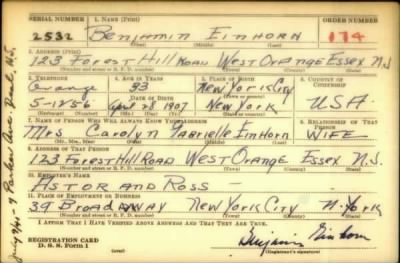 SERIAL NUMBER 1. NAME (Print) ORDER NUMBER
2532 BENJAMIN EINHORN 174
(First) (Middle) (Last)
2. ADDRESS (Print)
123 FOREST HILL ROAD WEST ORANGE ESSEX N.J.
(Number and street or R. F. D. number) (Town) (County) (State)
3. TELEPHONE 4. AGE IN YEARS 5. PLACE OF BIRTH 6. COUNTRY OF CITIZENSHIP
Orange 33 NEW YORK CITY
DATE OF BIRTH (Town or county)
5-1256 April 28 1907 NEW YORK USA
7. NAME OF PERSON WHO WILL ALWAYS KNOW YOUR ADDRESS 8. RELATIONSHIP OF THAT PERSON
MRS CAROLYN GABRIELLE EINHORN WIFE
(Mr., Mrs., Miss) (First) (Middle) (Last)
9. ADDRESS OF THAT PERSON
123 FOREST HILL ROAD WEST ORANGE ESSEX N.J.
(Number and street or R. F. D. number) (Town) (County) (State)
10. EMPLOYER'S NAME
ASTOR AND ROSS -
11. PLACE OF EMPLOYMENT OR BUSINESS
39 BROADWAY NEW YORK CITY N-YORK
(Number and street or R. F. D. number) (Town) (County) (State)
I AFFIRM THAT I HAVE VERIFIED ABOVE ANSWERS AND THAT THEY ARE TRUE.
REGISTRATION CARD
D. S. S. Form 1
Benjamin Einhorn
(Registrant's signature)
Parker Ave. Deal, N.J.